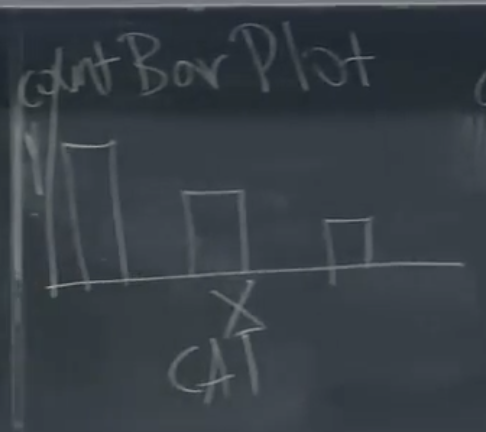 count Bar Plot
X
CAT